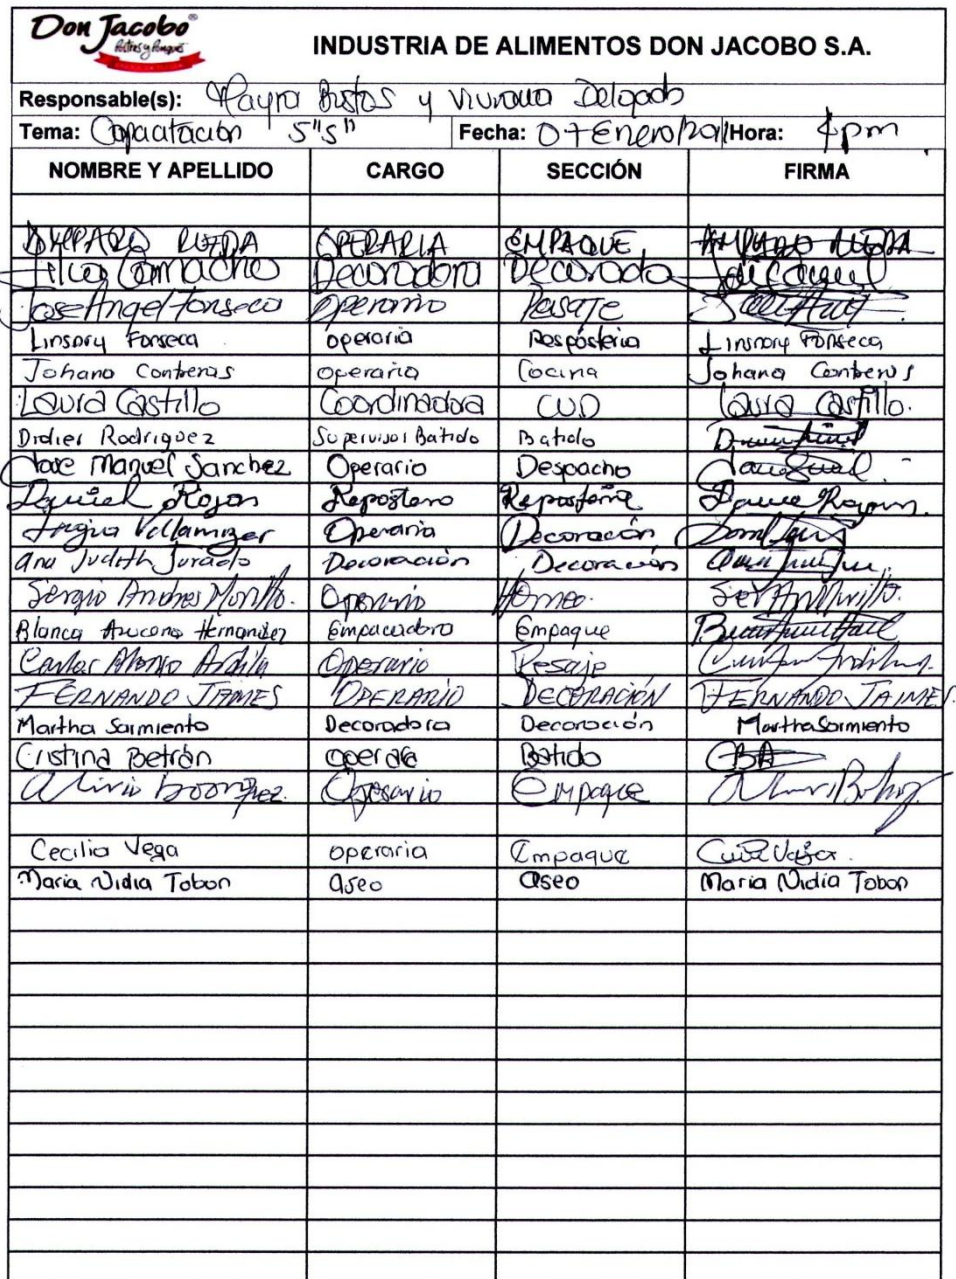 Don Jacobo®
Postres y Ponqués
INDUSTRIA DE ALIMENTOS DON JACOBO S.A.
Responsable(s): Mayra Bustos y Viviana Delgado
Tema: Capacitación 5"S" Fecha: 07 Enero Hora: 4pm
NOMBRE Y APELLIDO CARGO SECCIÓN FIRMA
AMPARO RUEDA OPERARIA EMPAQUE AMPARO RUEDA
Camacho Decoradora Decorado
Jose Angel Fonseca Operario Pesaje
Linsary Fonseca operaria Resposteria Fonseca
Johana Contreras operaria Cocina Johana Contreras
Laura Castillo Coordinadora CUD Laura Castillo.
Didier Rodriguez Supervisor Batido Batido
Jose Manuel Sanchez Operario Despacho
Daniel Rojas Repostero Reposteria
Villamizar Operaria Decoración
Ana Judith Jurado Decoración Decoración
Sergio Andres Morillo. Operario Horneo.
Blanca Azucena Hernandez Empacadora Empaque
Carlos Alonso Ardila Operario Pesaje
FERNANDO JAIMES OPERARIO DECORACIÓN FERNANDO JAIMES.
Martha Sarmiento Decoradora Decoración Martha Sarmiento
Cristina Betrán Batido CBA
Operario Empaque
Cecilia Vega operaria Empaque
Maria Nidia Tobon aseo aseo Maria Nidia Tobon